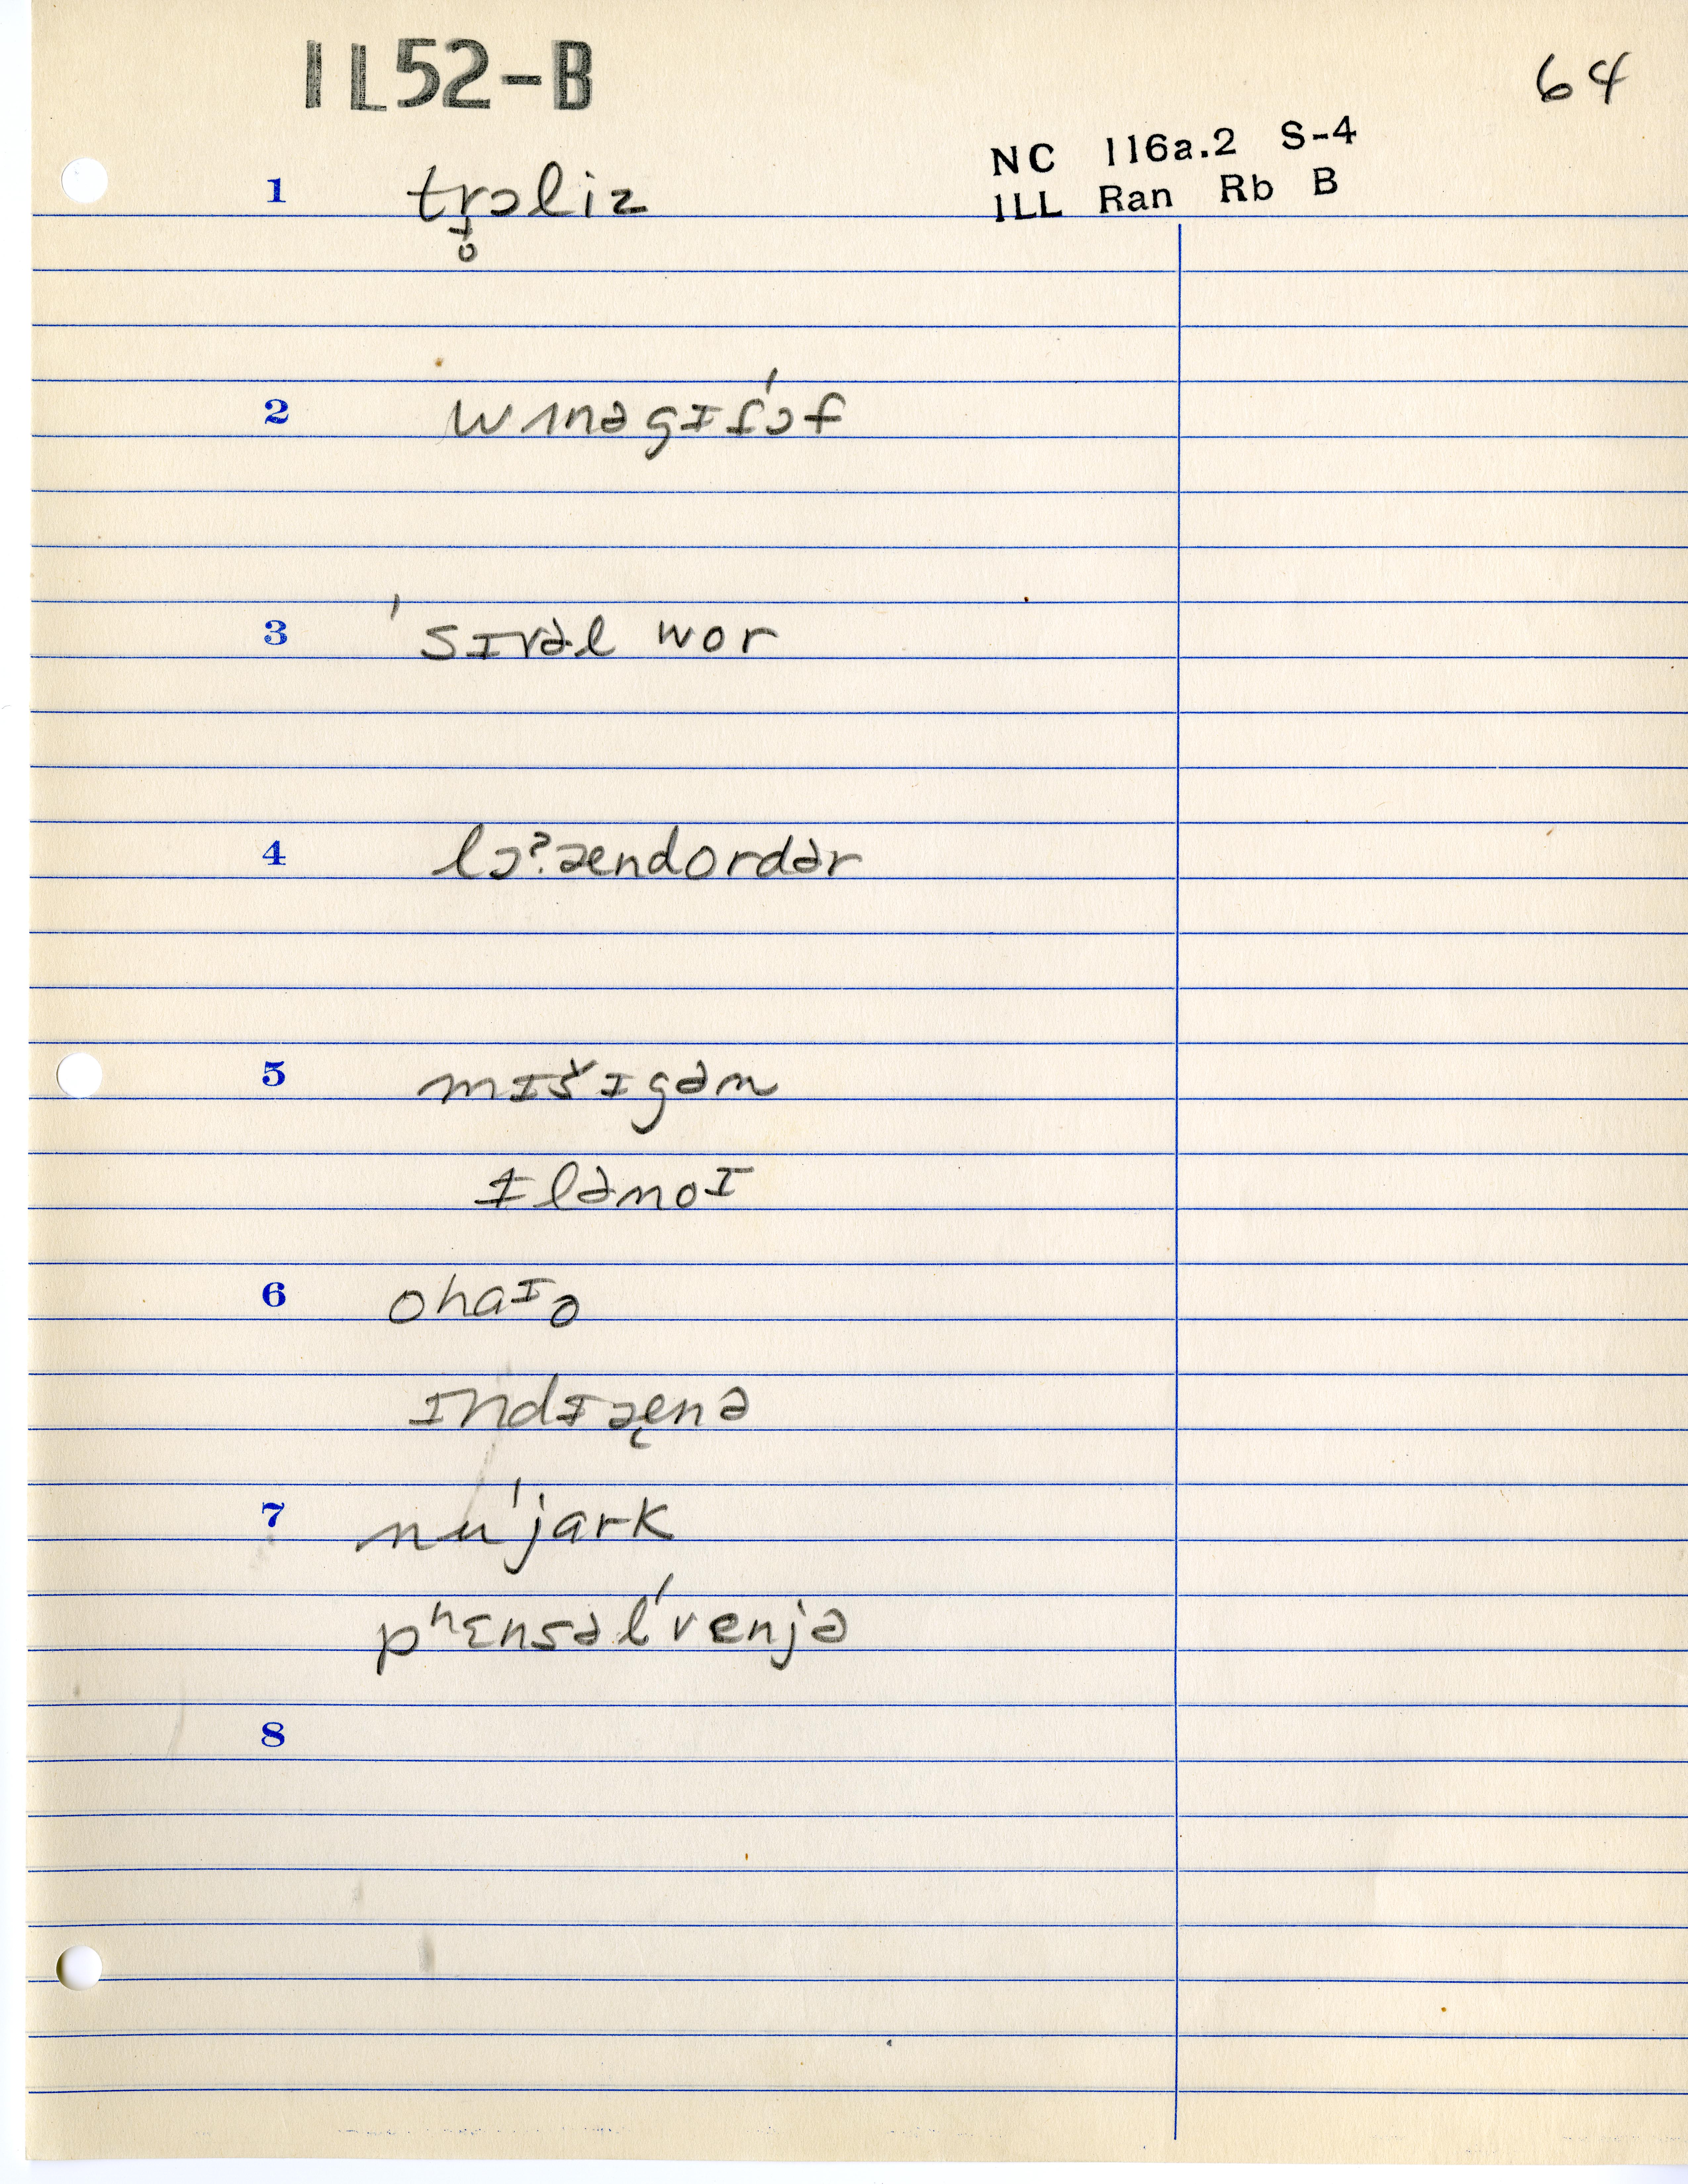 IL52-B
64
NC 116a.2 S-4
ILL Ran Rb B
1 tr̥ɔliz
2 wɪnəgɪf'ɔf
3 'sɪvəl wor
4 lɔˀændordər
5 mɪšɪgən
ɪlənoᶦ
6 ohaᶦo
ɪndɪæ̨nə
7 nu'jark
pʰɛnsəl'venjə
8